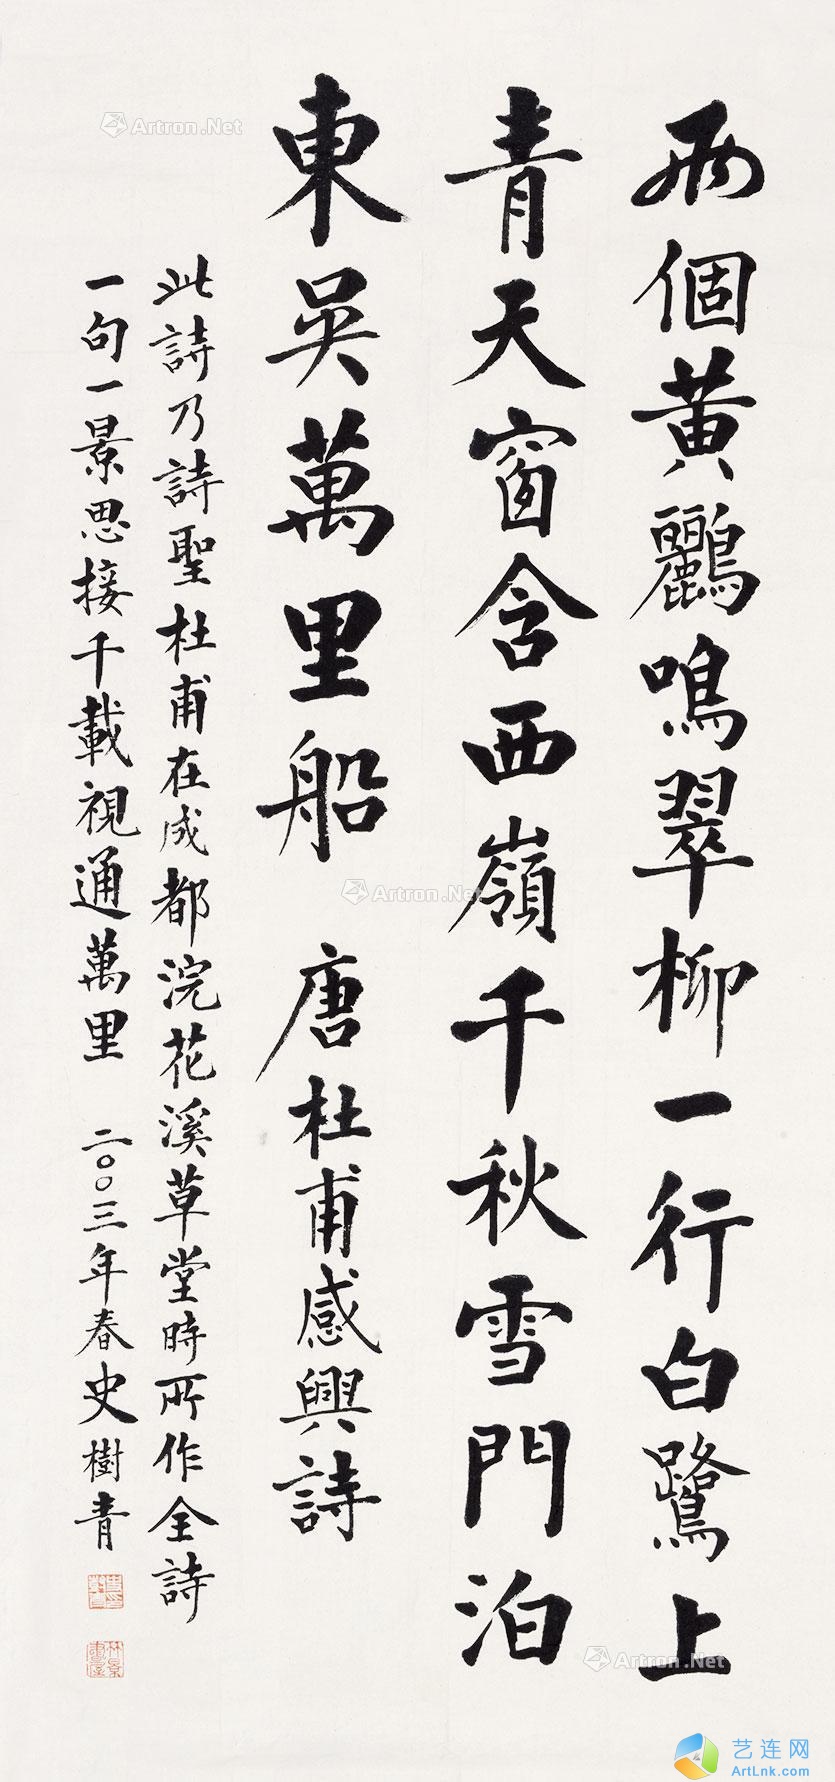 两個黄鸝鳴翠柳一行白鷺上
青天窗含西嶺千秋雪門泊
東吳萬里船 唐杜甫感興詩
此詩乃詩聖杜甫在成都浣花溪草堂時所作全詩
一句一景思接千載視通萬里 二〇〇三年春史樹青
Artron.Net
Artron.Net
Artron.Net
艺连网
ArtLnk.com